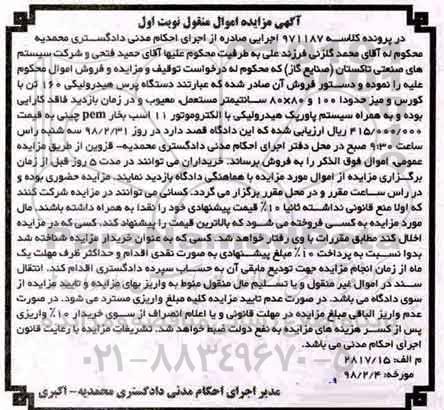 آگهی مزایده اموال منقول نوبت اول
در پرونده کلاسه ۹۷۱۱۸۷ اجرایی صادره از اجرای احکام مدنی دادگستری محمدیه
محکوم له آقای محمد گلزنی فرزند علی به طرفیت محکوم علیها آقای حمید فتحی و شرکت سیستم
های صنعتی تاکستان (صنایع گاز) که محکوم له درخواست توقیف و مزایده و فروش اموال محکوم
علیه را نموده و دستور فروش آن صادر شده که عبارتند دستگاه پرس هیدرولیکی ۱۶۰ تن با
کورس و میز حدودا ۱۰۰ و ۸۰×۸۰ سانتیمتر مستعمل، معیوب و در زمان بازدید فاقد کارایی
بوده و به همراه سیستم پاورپک هیدرولیکی با الکتروموتور ۱۱ اسب بخار pem چینی به قیمت
۴۱۵/۰۰۰/۰۰۰ ریال ارزیابی شده که این دادگاه قصد دارد در روز ۹۸/۲/۳۱ سه شنبه راس
ساعت ۹:۳۰ صبح در محل دفتر اجرای احکام مدنی دادگستری محمدیه- قزوین از طریق مزایده
عمومی اموال فوق الذکر را به فروش برساند. خریداران می توانند در مدت ۵ روز قبل از زمان
برگزاری مزایده از اموال مورد مزایده با هماهنگی دادگاه بازدید نمایند. مزایده حضوری بوده و
در راس ساعت مقرر و در محل مقرر برگزار می گردد. کسانی می توانند در مزایده شرکت کنند
که اولا منع قانونی نداشته ثانیا ۱۰٪ قیمت پیشنهادی خود را نقدا به همراه داشته باشند. مال
مورد مزایده به کسی فروخته می شود که بالاترین قیمت را پیشنهاد کند. کسی که در مزایده
اخلال کند مطابق مقررات با وی رفتار خواهد شد. کسی که به عنوان خریدار مزایده شناخته شد
بدوا نسبت به پرداخت ۱۰٪ مبلغ پیشنهادی به صورت نقدی اقدام و حداکثر ظرف مهلت یک
ماه از زمان انجام مزایده جهت تودیع مابقی آن به حساب سپرده دادگستری اقدام کند. انتقال
سند در اموال غیر منقول و یا تسلیم مال منقول منوط به واریز بهای مزایده و تایید مزایده از
سوی دادگاه می باشد. در صورت عدم تایید مزایده کلیه مبلغ واریزی مسترد می شود. در صورت
عدم واریز الباقی مبلغ مزایده در مهلت قانونی و یا اعلام انصراف از سوی خریدار ۱۰٪ واریزی
پس از کسر هزینه های مزایده به نفع دولت ضبط خواهد شد. تشریفات مزایده با رعایت قانون
اجرای احکام مدنی می باشد.
م الف: ۲۸۱۷/۱۵
مورخه: ۹۸/۲/۴
مدیر اجرای احکام مدنی دادگستری محمدیه- اکبری
۰۲۱-۸۸۳۴۹۶۷۰-۵